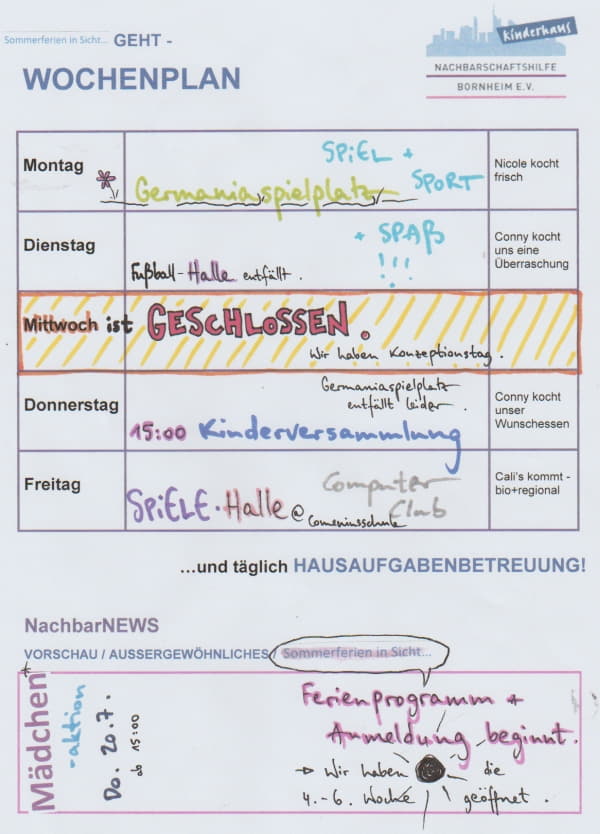 Sommerferien in Sicht... GEHT -
WOCHENPLAN
kinderhaus
NACHBARSCHAFTSHILFE
BORNHEIM E.V.
Montag
SPiEL +
SPORT
Germaniaspielplatz
Nicole kocht
frisch
Dienstag
+ SPAß
!!!
Fußball-Halle entfällt.
Conny kocht
uns eine
Überraschung
Mittwoch ist GESCHLOSSEN.
Wir haben Konzeptionstag.
Donnerstag
Germaniaspielplatz
entfällt leider.
15:00 Kinderversammlung
Conny kocht
unser
Wunschessen
Freitag
Computer
Club
SPiELE·Halle @ Comeniusschule
Cali's kommt -
bio+regional
...und täglich HAUSAUFGABENBETREUUNG!
NachbarNEWS
VORSCHAU / AUSSERGEWÖHNLICHES / Sommerferien in Sicht...
Mädchen
-aktion
Do. 20.7.
ab 15:00
Ferienprogramm +
Anmeldung beginnt.
→ Wir haben die
4.-6. Woche geöffnet.